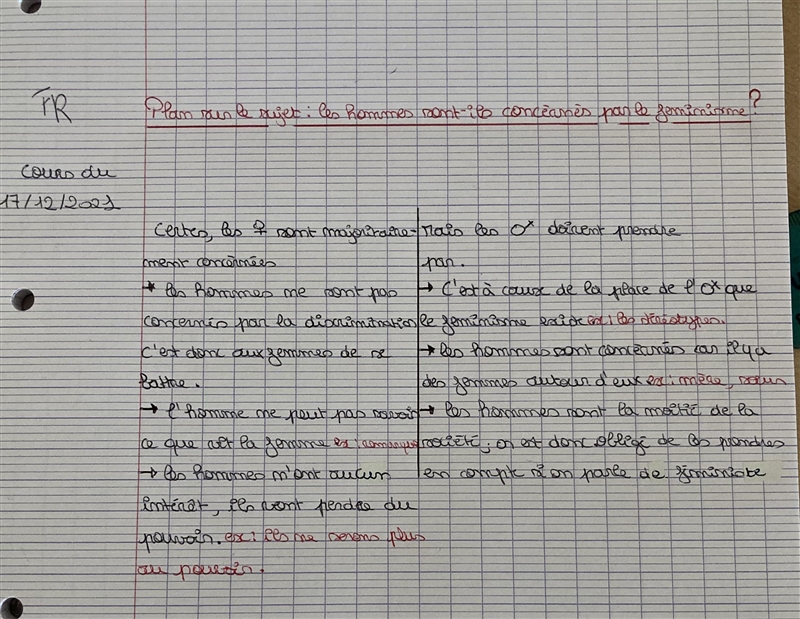 FR
Plan sur le sujet : les hommes sont-ils concernés par le féminisme ?
cours du
17/12/2021
Certes, les ♀ sont majoritaire-
ment concernées
→ les hommes ne sont pas
concernés par la discrimination
c'est donc aux femmes de se
battre.
→ l'homme ne peut pas savoir
ce que vit la femme ex :
→ les hommes n'ont aucun
intérêt, ils vont perdre du
pouvoir. ex : ils ne serons plus
au pouvoir.
Mais les ♂ doivent prendre
par.
→ C'est à cause de la place de l'♂ que
le féminisme existe ex : les stéréotypes.
→ les hommes sont concernés car il y a
des femmes autour d'eux ex : mère, sœur
→ les hommes sont la moitié de la
société, on est donc obligé de les prendres
en compte si on parle de féministe